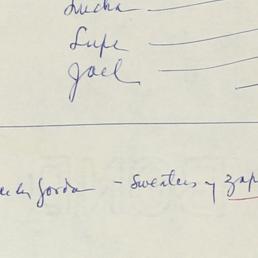 Lucha
Lupe
Joel
Gorda - Sweaters y zap